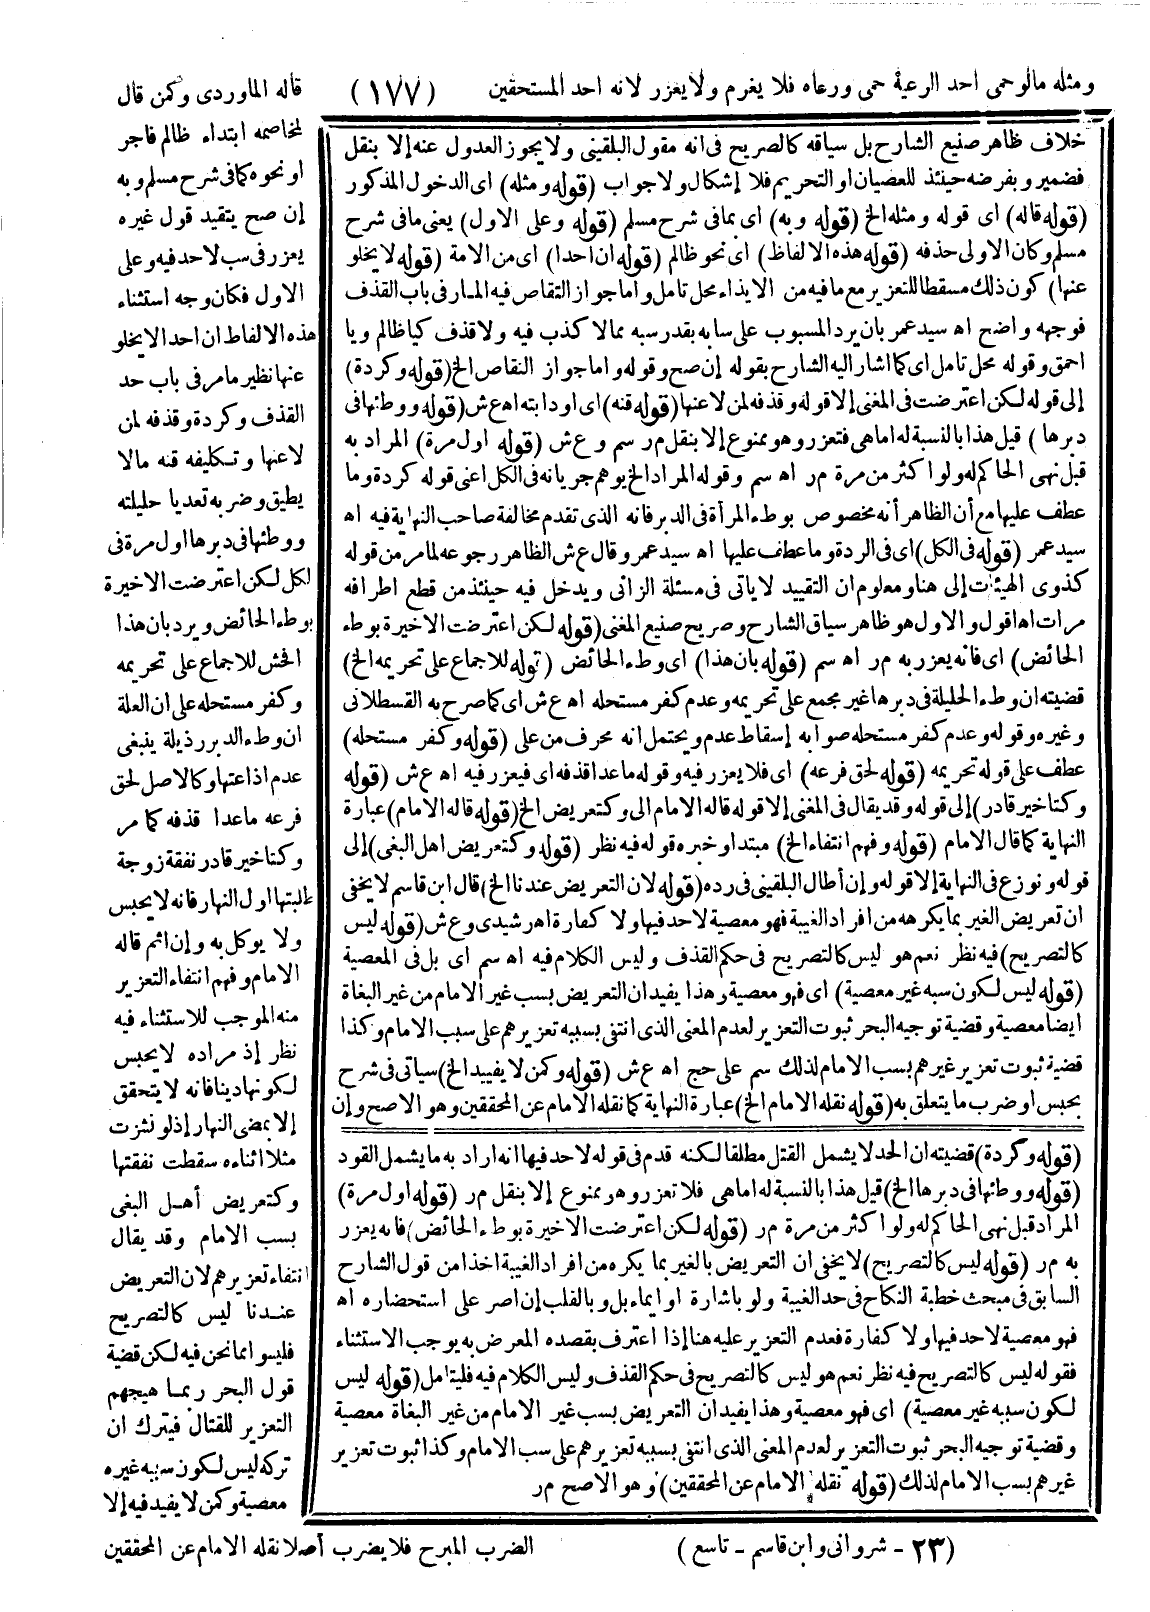 ومثله مالو حمى احد الرعية حمى ورعاه فلا يغرم ولا يعزر لانه احد المستحقين
(١٧٧)
قاله الماوردى وكمن قال
لمخاصمه ابتداء ظالم فاجر
او نحوه كما فى شرح مسلم وبه
إن صح يتقيد قول غيره
يعزر فى سب لا حد فيه وعلى
الاول فكان وجه استثناء
هذه الالفاظ ان احدا لا يخلو
عنها نظير ما مر فى باب حد
القذف وكردة وقذفه لمن
لاعنها وتكليفه قنه مالا
يطيق وضربه تعديا حليلته
ووطئها فى دبرها اول مرة فى
لكل لكن اعترضت الاخيرة
بوطء الحائض ويرد بان هذا
افحش للاجماع على تحريمه
وكفر مستحله على ان العلة
ان وطء الدبر رذيلة ينبغى
عدم اذاعتها وكالاصل لحق
فرعه ماعدا قذفه كما مر
وكتاخير قادر نفقة زوجة
طلبتها اول النهار فانه لا يحبس
ولا يوكل به وإن اثم قاله
الامام وفهم انتفاء التعزير
منه الموجب للاستثناء فيه
نظر إذ مراده لا يحبس
لكونها دينا فانه لا يتحقق
إلا بمضى النهار إذ لو نشزت
مثلا اثناءه سقطت نفقتها
وكتعريض أهل البغى
بسب الامام وقد يقال
انتفاء تعزيرهم لان التعريض
عندنا ليس كالتصريح
فليسوا مما نحن فيه لكن قضية
قول البحر ربما هيجهم
التعزير للقتال فيترك ان
تركه ليس لكون سببه غيره
معصية وكمن لا يفيد فيه إلا
الضرب المبرح فلا يضرب أصلا نقله الامام عن المحققين
خلاف ظاهر صنيع الشارح بل سياقه كالصريح فى انه مقول البلقينى ولا يجوز العدول عنه إلا بنقل
فضمير وبفرضه حينئذ للعصيان او التحريم فلا إشكال ولا جواب (قوله ومثله) اى الدخول المذكور
(قوله قاله) اى قوله ومثله الخ (قوله وبه) اى بما فى شرح مسلم (قوله وعلى الاول) يعنى ما فى شرح
مسلم وكان الاولى حذفه (قوله هذه الالفاظ) اى نحو ظالم (قوله ان احدا) اى من الامة (قوله لا يخلو
عنها) كون ذلك مسقطا للتعزير مع ما فيه من الايذاء محل تامل واما جواز التقاص فيه المار فى باب القذف
فوجهه واضح اه سيد عمر بان يرد المسبوب على سابه بقدر سبه بمالا كذب فيه ولا قذف كيا ظالم ويا
احمق وقوله محل تامل اى كما اشار اليه الشارح بقوله إن صح وقوله واما جواز التقاص الخ (قوله وكردة)
إلى قوله لكن اعترضت فى المغنى إلا قوله وقذفه لمن لاعنها (قوله قنه) اى او دابته اه ع ش (قوله ووطئها فى
دبرها) قيل هذا بالنسبة له اما هى فتعزر وهو ممنوع إلا بنقل م ر سم و ع ش (قوله اول مرة) المراد به
قبل نهى الحاكم له ولو اكثر من مرة م ر اه سم وقوله المراد الخ يوهم جريانه فى الكل اعنى قوله كردة وما
عطف عليها مع أن الظاهر أنه مخصوص بوطء المرأة فى الدبر فانه الذى تقدم مخالفة صاحب النهاية فيه اه
سيد عمر (قوله فى الكل) اى فى الردة وما عطف عليها اه سيد عمر وقال ع ش الظاهر رجوعه لما مر من قوله
كذوى الهيئات إلى هنا ومعلوم ان التقييد لا ياتى فى مسئلة الزانى ويدخل فيه حينئذ من قطع اطرافه
مرات اه اقول والاول هو ظاهر سياق الشارح وصريح صنيع المغنى (قوله لكن اعترضت الاخيرة بوطء
الحائض) اى فانه يعزر به م ر اه سم (قوله بان هذا) اى وطء الحائض (قوله للاجماع على تحريمه الخ)
قضيته ان وطء الحليلة فى دبرها غير مجمع على تحريمه وعدم كفر مستحله اه ع ش اى كما صرح به القسطلانى
وغيره وقوله وعدم كفر مستحله صوابه إسقاط عدم ويحتمل انه محرف من على (قوله وكفر مستحله)
عطف على قوله تحريمه (قوله لحق فرعه) اى فلا يعزر فيه وقوله ماعدا قذفه اى فيعزر فيه اه ع ش (قوله
وكتاخير قادر) إلى قوله وقد يقال فى المغنى إلا قوله قاله الامام الى وكتعريض الخ (قوله قاله الامام) عبارة
النهاية كما قال الامام (قوله وفهم انتفاء الخ) مبتدا وخبره قوله فيه نظر (قوله وكتعريض اهل البغى) إلى
قوله ونوزع فى النهاية إلا قوله وإن أطال البلقينى فى رده (قوله لان التعريض عندنا الخ) قال ابن قاسم لا يخفى
ان تعريض الغير بما يكرهه من افراد الغيبة فهو معصية لا حد فيها ولا كفارة اه رشيدى و ع ش (قوله ليس
كالتصريح) فيه نظر نعم هو ليس كالتصريح فى حكم القذف وليس الكلام فيه اه سم اى بل فى المعصية
(قوله ليس لكون سبه غير معصية) اى فهو معصية وهذا يفيد ان التعريض بسب غير الامام من غير البغاة
ايضا معصية وقضية توجيه البحر ثبوت التعزير لعدم المعنى الذى انتفى بسببه تعزيرهم على سبب الامام وكذا
قضية ثبوت تعزير غيرهم بسب الامام لذلك سم على حج اه ع ش (قوله وكمن لا يفييد الخ) سياتى فى شرح
بحبس او ضرب ما يتعلق به (قوله نقله الامام الخ) عبارة النهاية كما نقله الامام عن المحققين وهو الاصح وإن
(قوله وكردة) قضيته ان الحد لا يشمل القتل مطلقا لكنه قدم فى قوله لا حد فيها انه اراد به ما يشمل القود
(قوله ووطئها فى دبرها الخ) قيل هذا بالنسبة له اما هى فلا تعزر وهو ممنوع إلا بنقل م ر (قوله اول مرة)
المراد قبل نهى الحاكم له ولو اكثر من مرة م ر (قوله لكن اعترضت الاخيرة بوطء الحائض) فانه يعزر
به م ر (قوله ليس كالتصريح) لا يخفى ان التعريض بالغير بما يكره من افراد الغيبة اخذا من قول الشارح
السابق فى مبحث خطبة النكاح فى حد الغيبة ولو باشارة او ايماء بل وبالقلب إن اصر على استحضاره اه
فهو معصية لا حد فيها ولا كفارة فعدم التعزير عليه هنا إذا اعترف بقصده المعرض به يوجب الاستثناء
فقوله ليس كالتصريح فيه نظر نعم هو ليس كالتصريح فى حكم القذف وليس الكلام فيه فليتامل (قوله ليس
لكون سببه غير معصية) اى فهو معصية وهذا يفيد ان التعريض بسب غير الامام من غير البغاة معصية
وقضية توجيه البحر ثبوت التعزير لعدم المعنى الذى انتفى بسببه تعزيرهم على سب الامام وكذا ثبوت تعزير
غيرهم بسب الامام لذلك (قوله نقله الامام عن المحققين) وهو الاصح م ر
(٢٣ - شروانى وابن قاسم - تاسع)